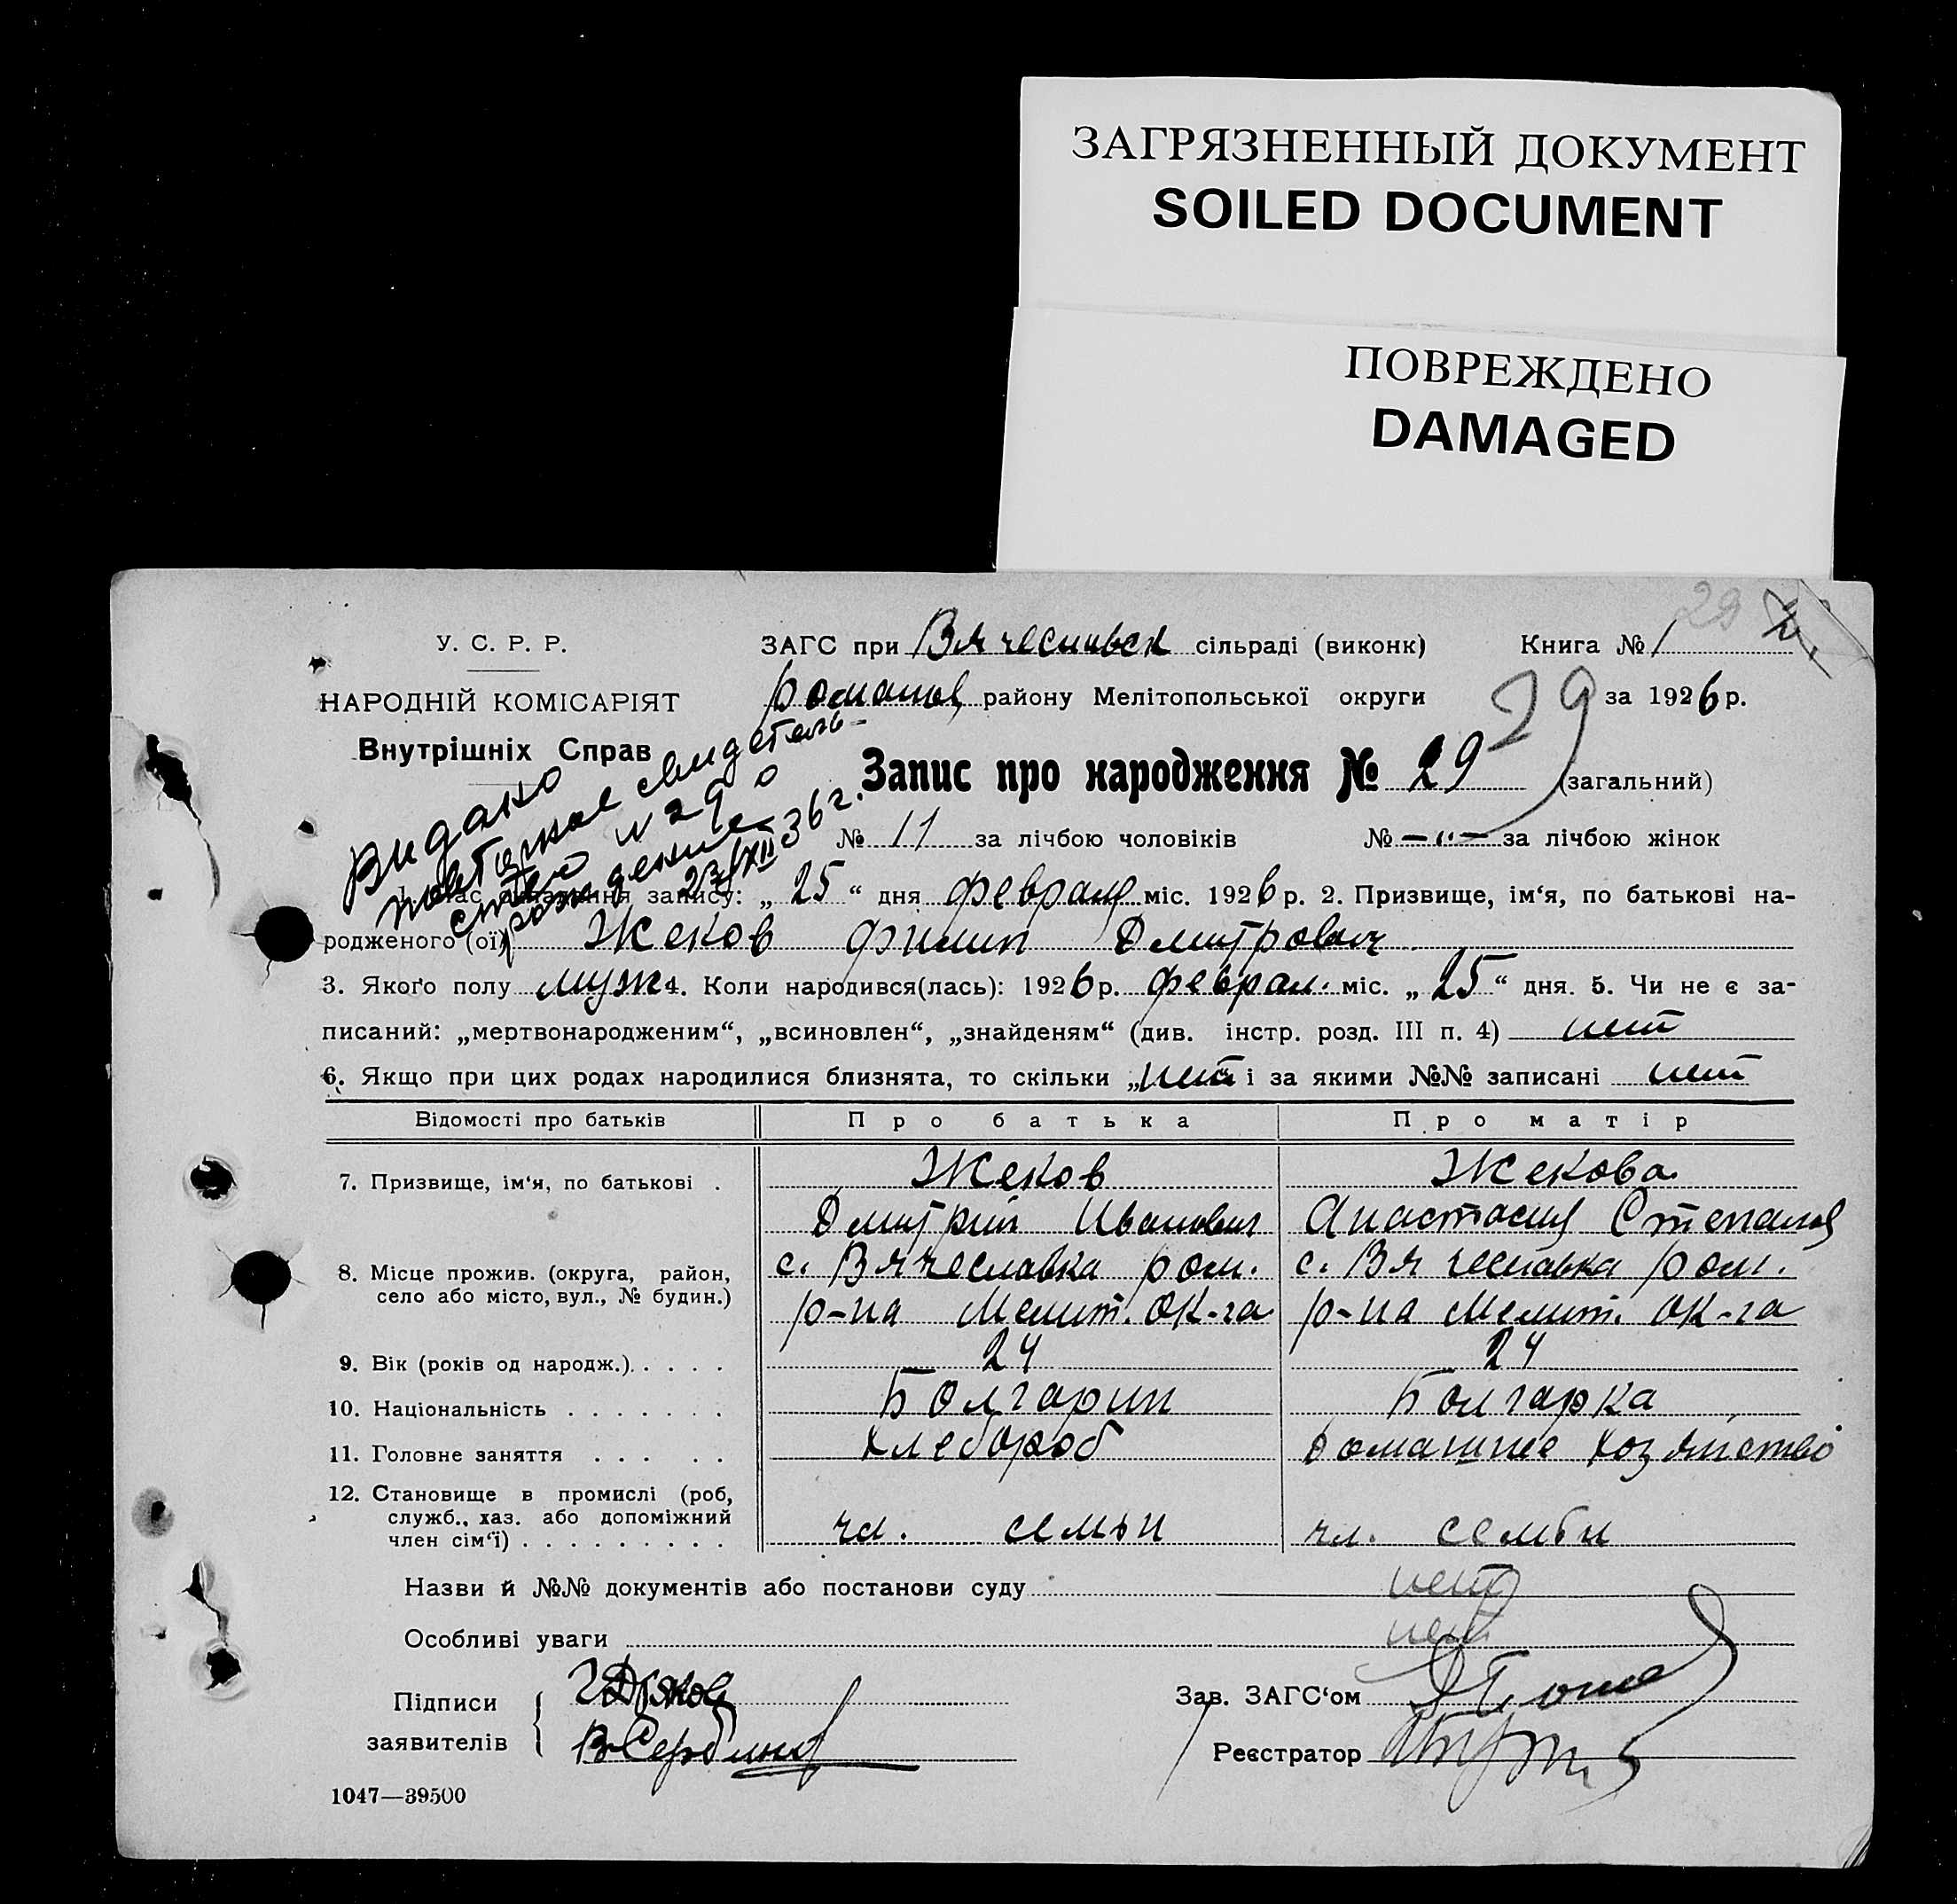 ЗАГРЯЗНЕННЫЙ ДОКУМЕНТ
SOILED DOCUMENT
ПОВРЕЖДЕНО
DAMAGED
29
У. С. Р. Р.
НАРОДНІЙ КОМІСАРІЯТ
Внутрішніх Справ
ЗАГС при Вячеславск сільраді (виконк) Книга № 1
романов району Мелітопольської округи за 1926 р.
29
Запис про народження № 29 (загальний)
№ 11 за лічбою чоловіків № —"— за лічбою жінок
Видано
повторное свидетель-
ство № 29 о
рождении
23/XII 36 г.
час складання запису: „ 25 “ дня февраля міс. 1926 р. 2. Призвище, ім‘я, по батькові на-
родженого (ої) Жеков Филип Дмитрович
3. Якого полу муж 4. Коли народився(лась): 1926 р. феврал. міс. „ 25 “ дня. 5. Чи не є за-
писаний: „мертвонародженим“, „всиновлен“, „знайденям“ (див. інстр. розд. III п. 4) нет
6. Якщо при цих родах народилися близнята, то скільки „ нет і за якими №№ записані нет
Відомості про батьків Про батька Про матір
7. Призвище, ім‘я, по батькові . Жеков Жекова
Дмитрий Иванович Анастасия Степанов
8. Місце прожив. (округа, район, село або місто, вул., № будин.) с. Вячеславка ром. с. Вячеславка ром.
р-на Мелит. ок-га р-на Мелит. ок-га
9. Вік (років од народж.). . . . 24 24
10. Національність . . . . . . . Болгарин Болгарка
11. Головне заняття . . . . . Хлебороб Домашнее хозяйство
12. Становище в промислі (роб, служб., хаз. або допоміжний член сім‘ї) . . . . . . . . . чл. семьи чл. семьи
Назви й №№ документів або постанови суду нет
Особливі уваги нет
Підписи
заявителів
В Сербинов
Зав. ЗАГС‘ом
Реєстратор
1047—39500